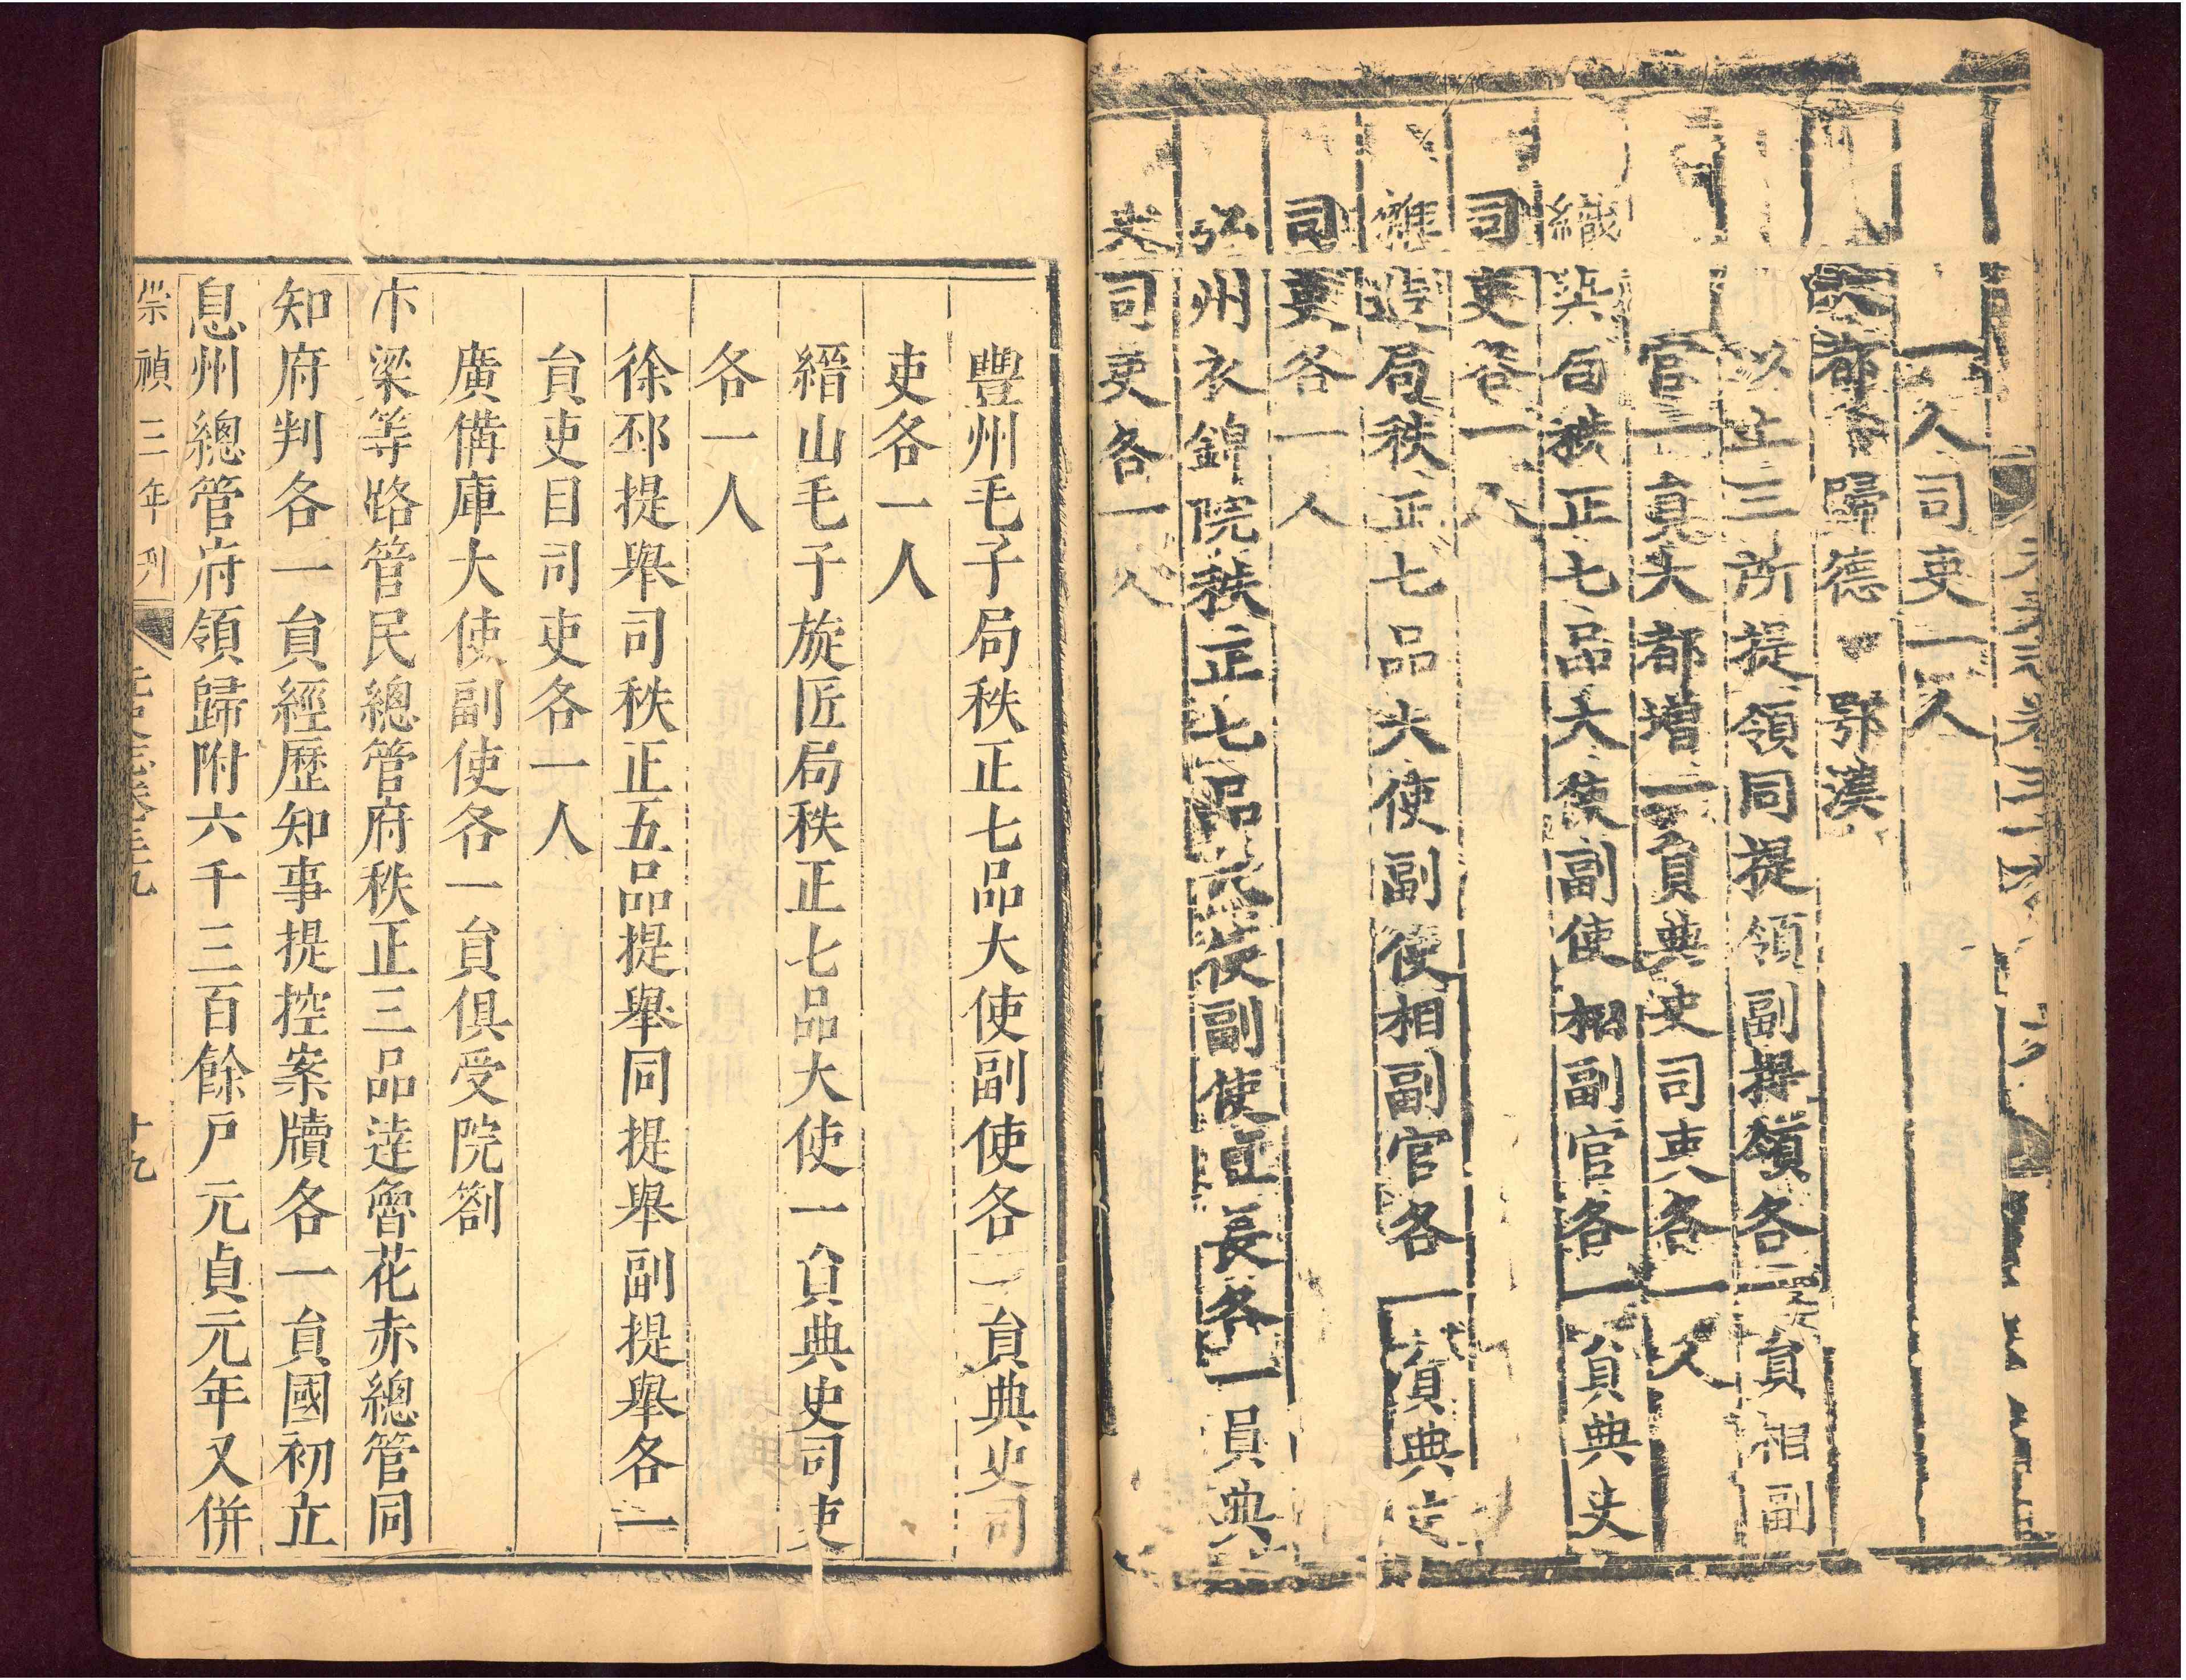 一人司吏一人
大都等處歸德 鄂漢
以上三所提領同提領副提領各一員相副
官一員大都增一員典史司吏各一人
織染局秩正七品大使副使相副官各一員典史
司吏各一人
雜造局秩正七品大使副使相副官各一員典史
司吏各一人
弘州衣錦院秩正七品大使副使直長各一員典
史司吏各一人
豐州毛子局秩正七品大使副使各一員典史司
吏各一人
縉山毛子旋匠局秩正七品大使一員典史司吏
各一人
徐邳提舉司秩正五品提舉同提舉副提舉各一
員吏目司吏各一人
廣備庫大使副使各一員俱受院劄
汴梁等路管民總管府秩正三品達魯花赤總管同
知府判各一員經歷知事提控案牘各一員國初立
息州總管府領歸附六千三百餘戶元貞元年又併
崇禎三年刊 元史志卷三十九 十九